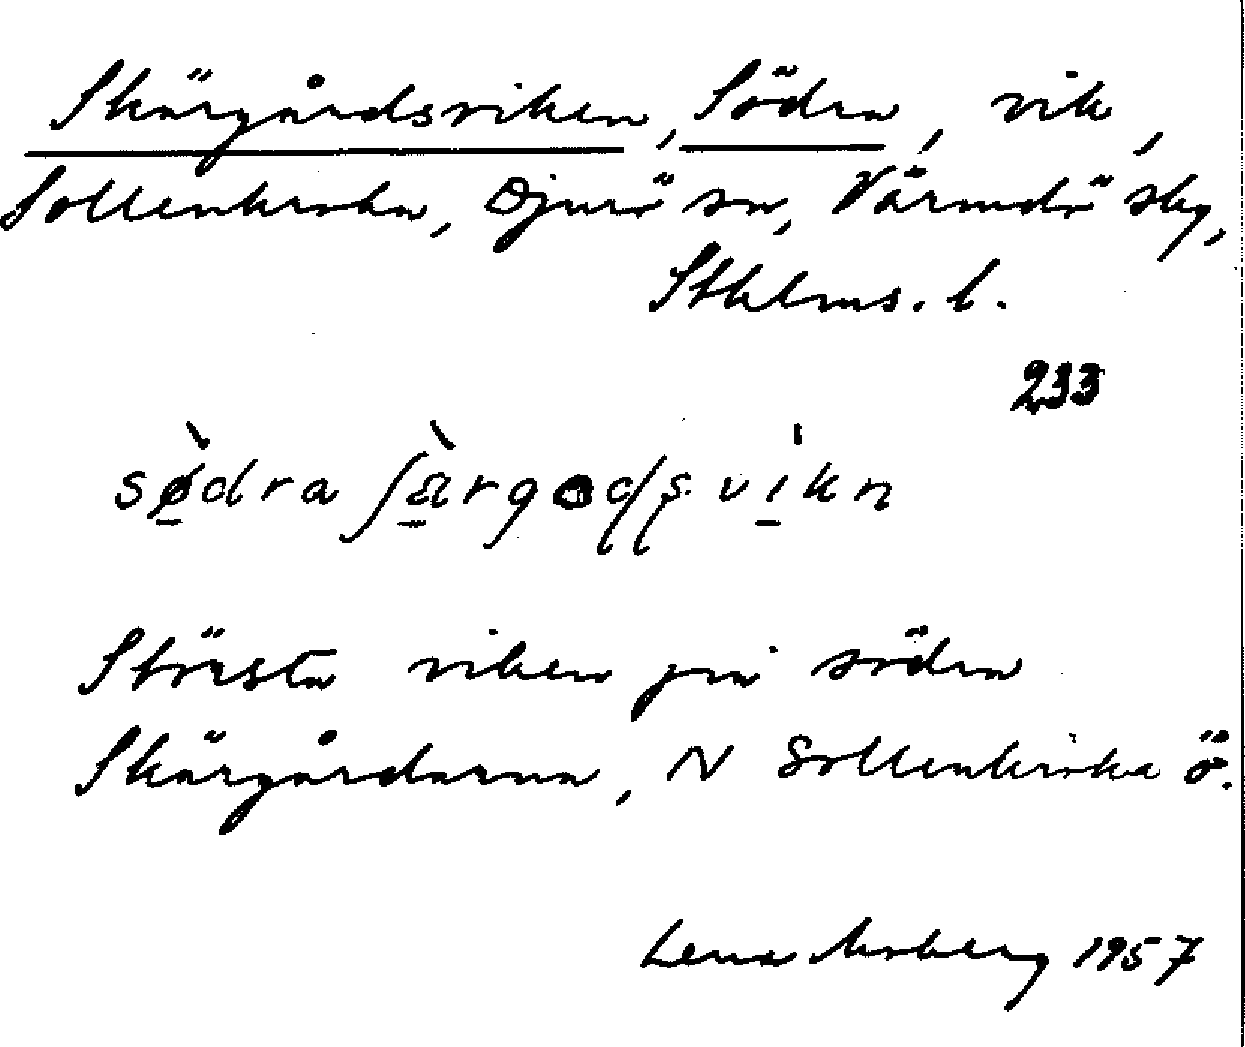 Skärgårdsviken, Södra, vik,
Sollenkroka, Djurö sn, Värmdö skg,
Sthlms. l.
233
sø̱̀dra ʃà̱rgodsvi̱kn
Största viken på södra
Skärgårdarna, N Sollenkroka ö.
Lena Moberg 1957